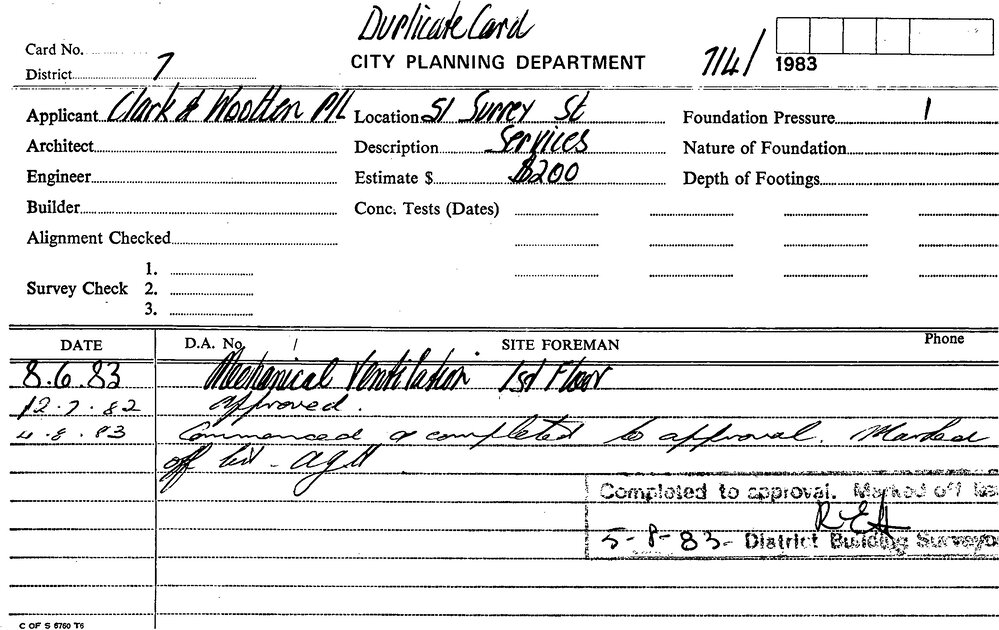 Duplicate Card
Card No.
CITY PLANNING DEPARTMENT 714/ 1983
District 7
Applicant Clark & Wootten P/L Location 51 Surrey St Foundation Pressure 1
Architect Description Services Nature of Foundation
Engineer Estimate $ $200 Depth of Footings
Builder Conc. Tests (Dates)
Alignment Checked
1.
Survey Check 2.
3.
DATE D.A. No. / SITE FOREMAN Phone
8.6.83 Mechanical Ventilation 1st Floor
12.7.82 approved.
4.8.83 Commenced & completed to approval. Marked
off list - AGH
Completed to approval. Marked off lis
REH
5-8-83- District Building Surveyo
C OF S 6760 T6